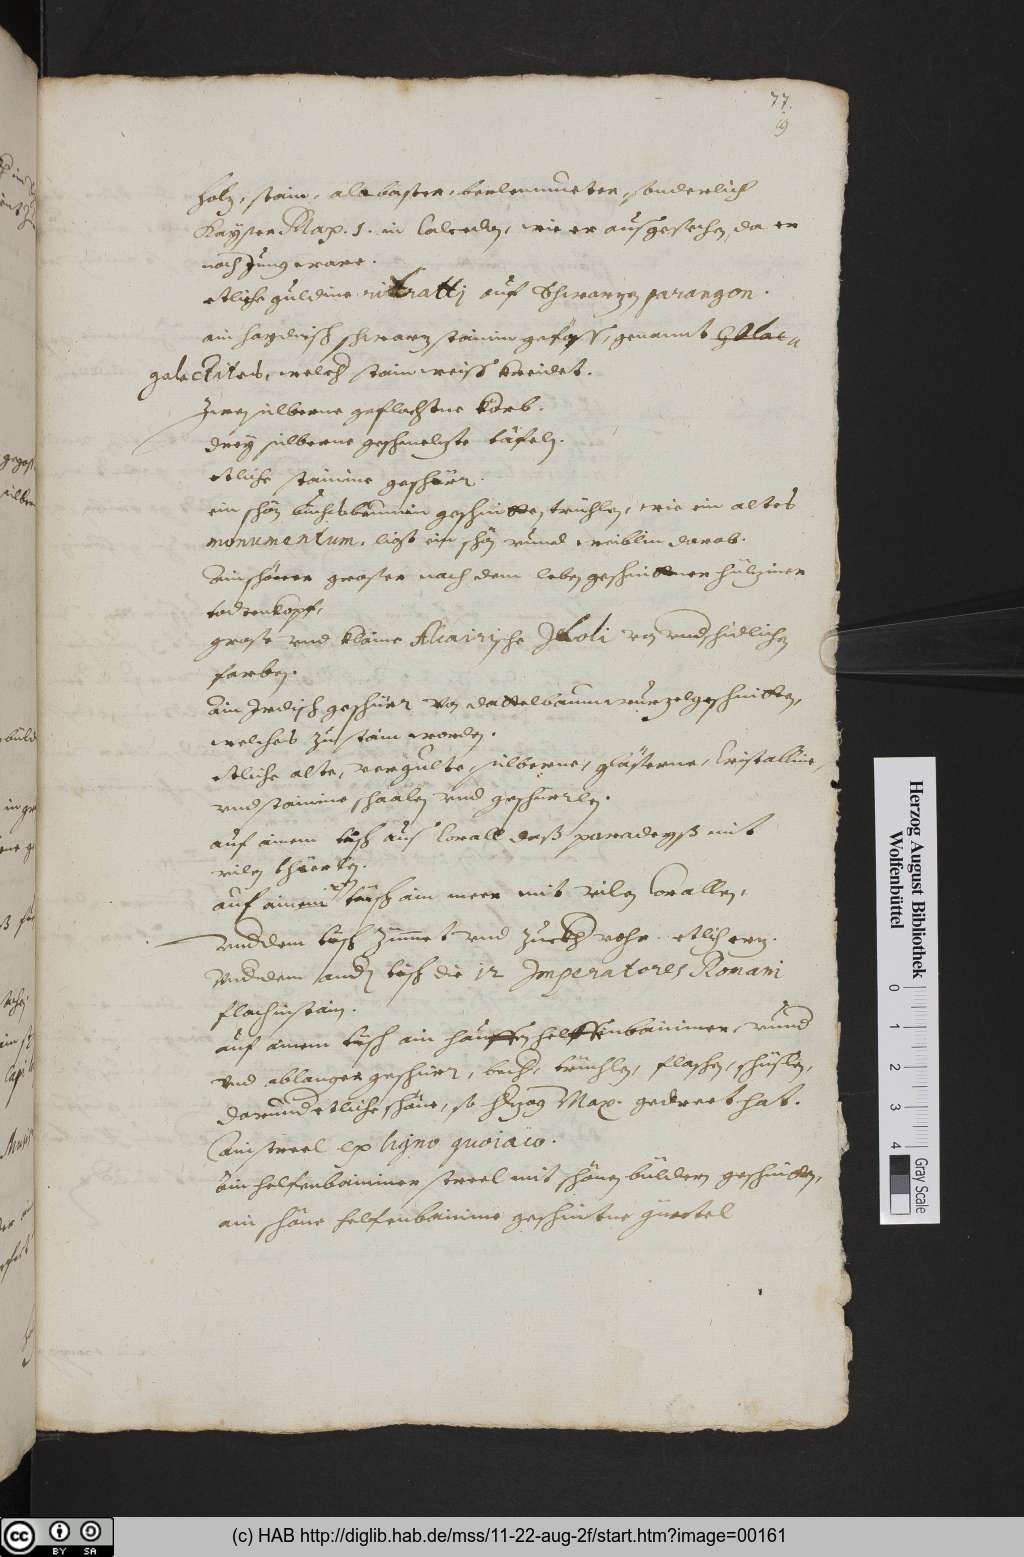 77.
19
holz, stain, alabaster, berlemmueter, sonderlich
Kayser Max. 1. in Calcedon, wie er ausgesechen, da er
noch Jung ware.
etliche guldine ritratti auf schwarzen parangon.
ain haydnisch schwarz stainin gefäss, genannt
galactites, welch stain weiss kreidet.
Zwen silberne geflochtne Korb.
drey silberne geschmelzte täfelen.
etliche stainine geschürr.
ein schön buchsbaumin geschnitten trühlen, wie ein altes
monumentum, ligt ein schön nund weiblin darob.
Ain schöner grosser nach dem leben geschnittner hülziner
todtenkopf,
grosse und klaine Idoli von underschidlichen
farben.
Ain Indisch geschürr von dattelbaumwurzel geschnitten,
welches zu stain worden.
etliche alte, vergulte, silberne, gläserne, Cristalline,
und stainine schaalen und geschürrlen.
auf ainem tisch aus Corall dass paradeyss mit
vilen thierlen.
auf ainem tisch ain meer mit vilen Corallen,
Under dem tisch Zimmet und Zuckh rohr etlich
Under dem andern tisch die 12 Imperatores Romani
flach in stain.
auf ainem tisch ain hauffen helffenbaininer, rund
und ablanger geschürr, bech, trühlen, flaschen, schüslen,
darunder etliche schöne, so Herzog Max. gedreet hat.
Ain streel ex ligno guoiaco.
Ain helfenbaininer streel mit schönen bildern geschnitten,
ain schöne helfenbainine geschnitne gürtel
Herzog August Bibliothek
Wolfenbüttel
0 1 2 3 4
Gray Scale
cc BY SA
(c) HAB http://diglib.hab.de/mss/11-22-aug-2f/start.htm?image=00161